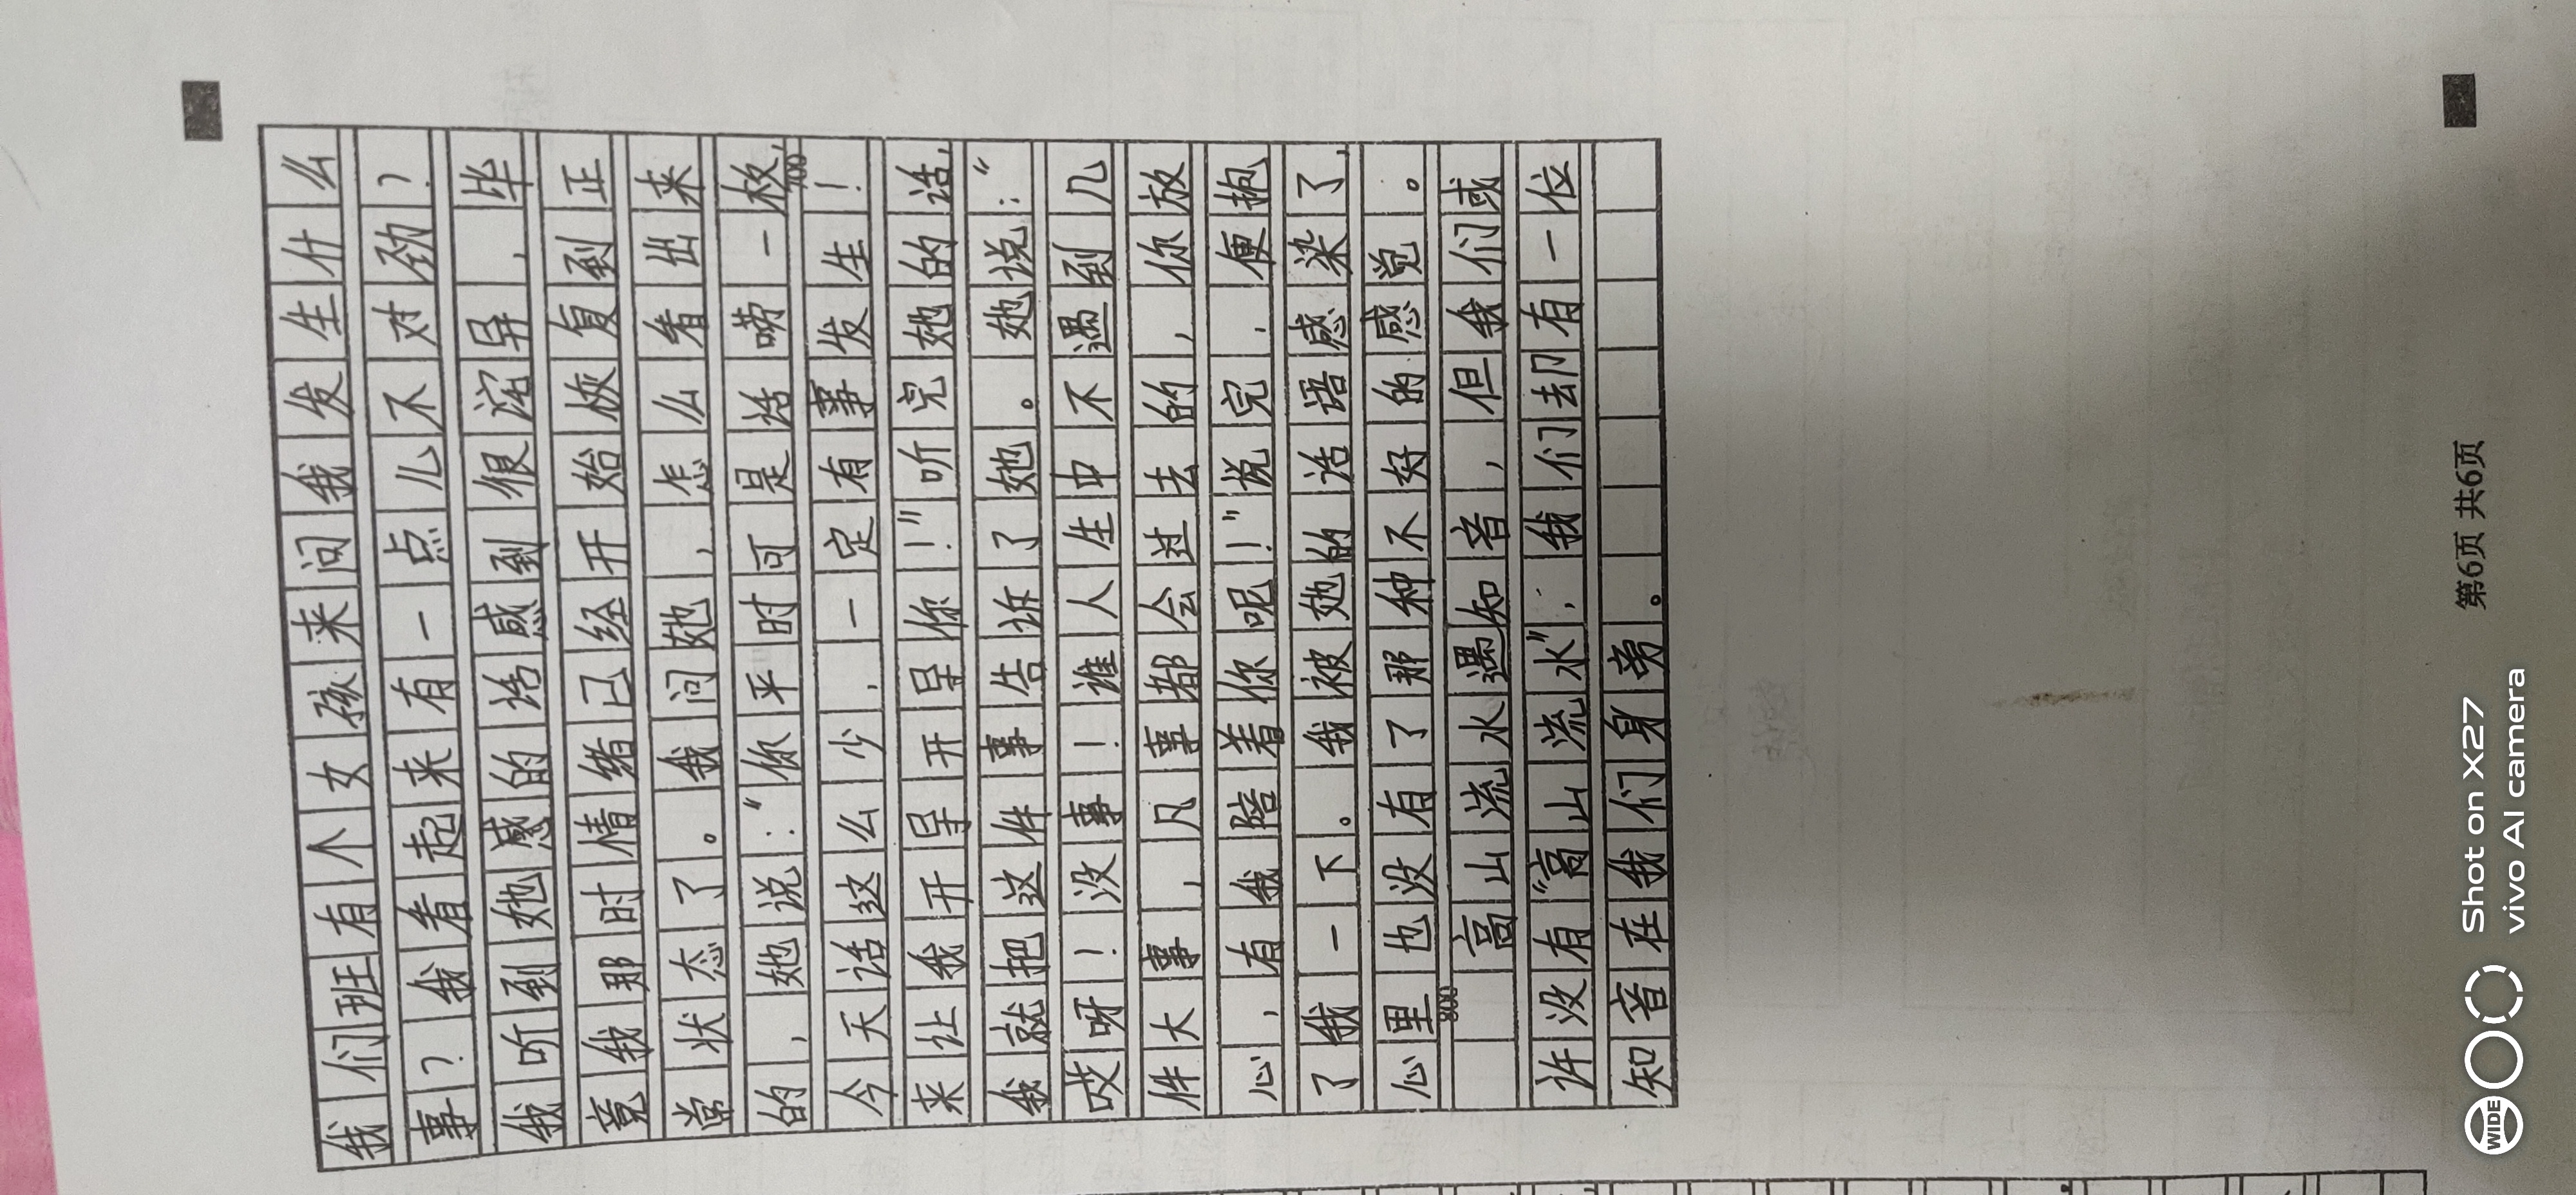 我们班有个女孩来问我发生什么
事？我看起来有一点儿不对劲？
我听到她感的话感到很诧异，毕
竟我那时情绪已经开始恢复到正
常状态了。我问她，怎么看出来
的，她说：“你平时可是话唠一枚，
700
今天话这么少，一定有事发生！
来让我开导开导你！”听完她的话，
我就把这件事告诉了她。她说：“
哎呀！没事！谁人生中不遇到几
件大事，凡事都会过去的，你放
心，有我陪着你呢！”说完，便抱
了我一下。我被她的话语感染了，
心里也没有了那种不好的感觉。
800
高山流水遇知音，但我们或
许没有“高山流水”，我们却有一位
知音在我们身旁。
第6页 共6页
WIDE
Shot on X27
vivo AI camera